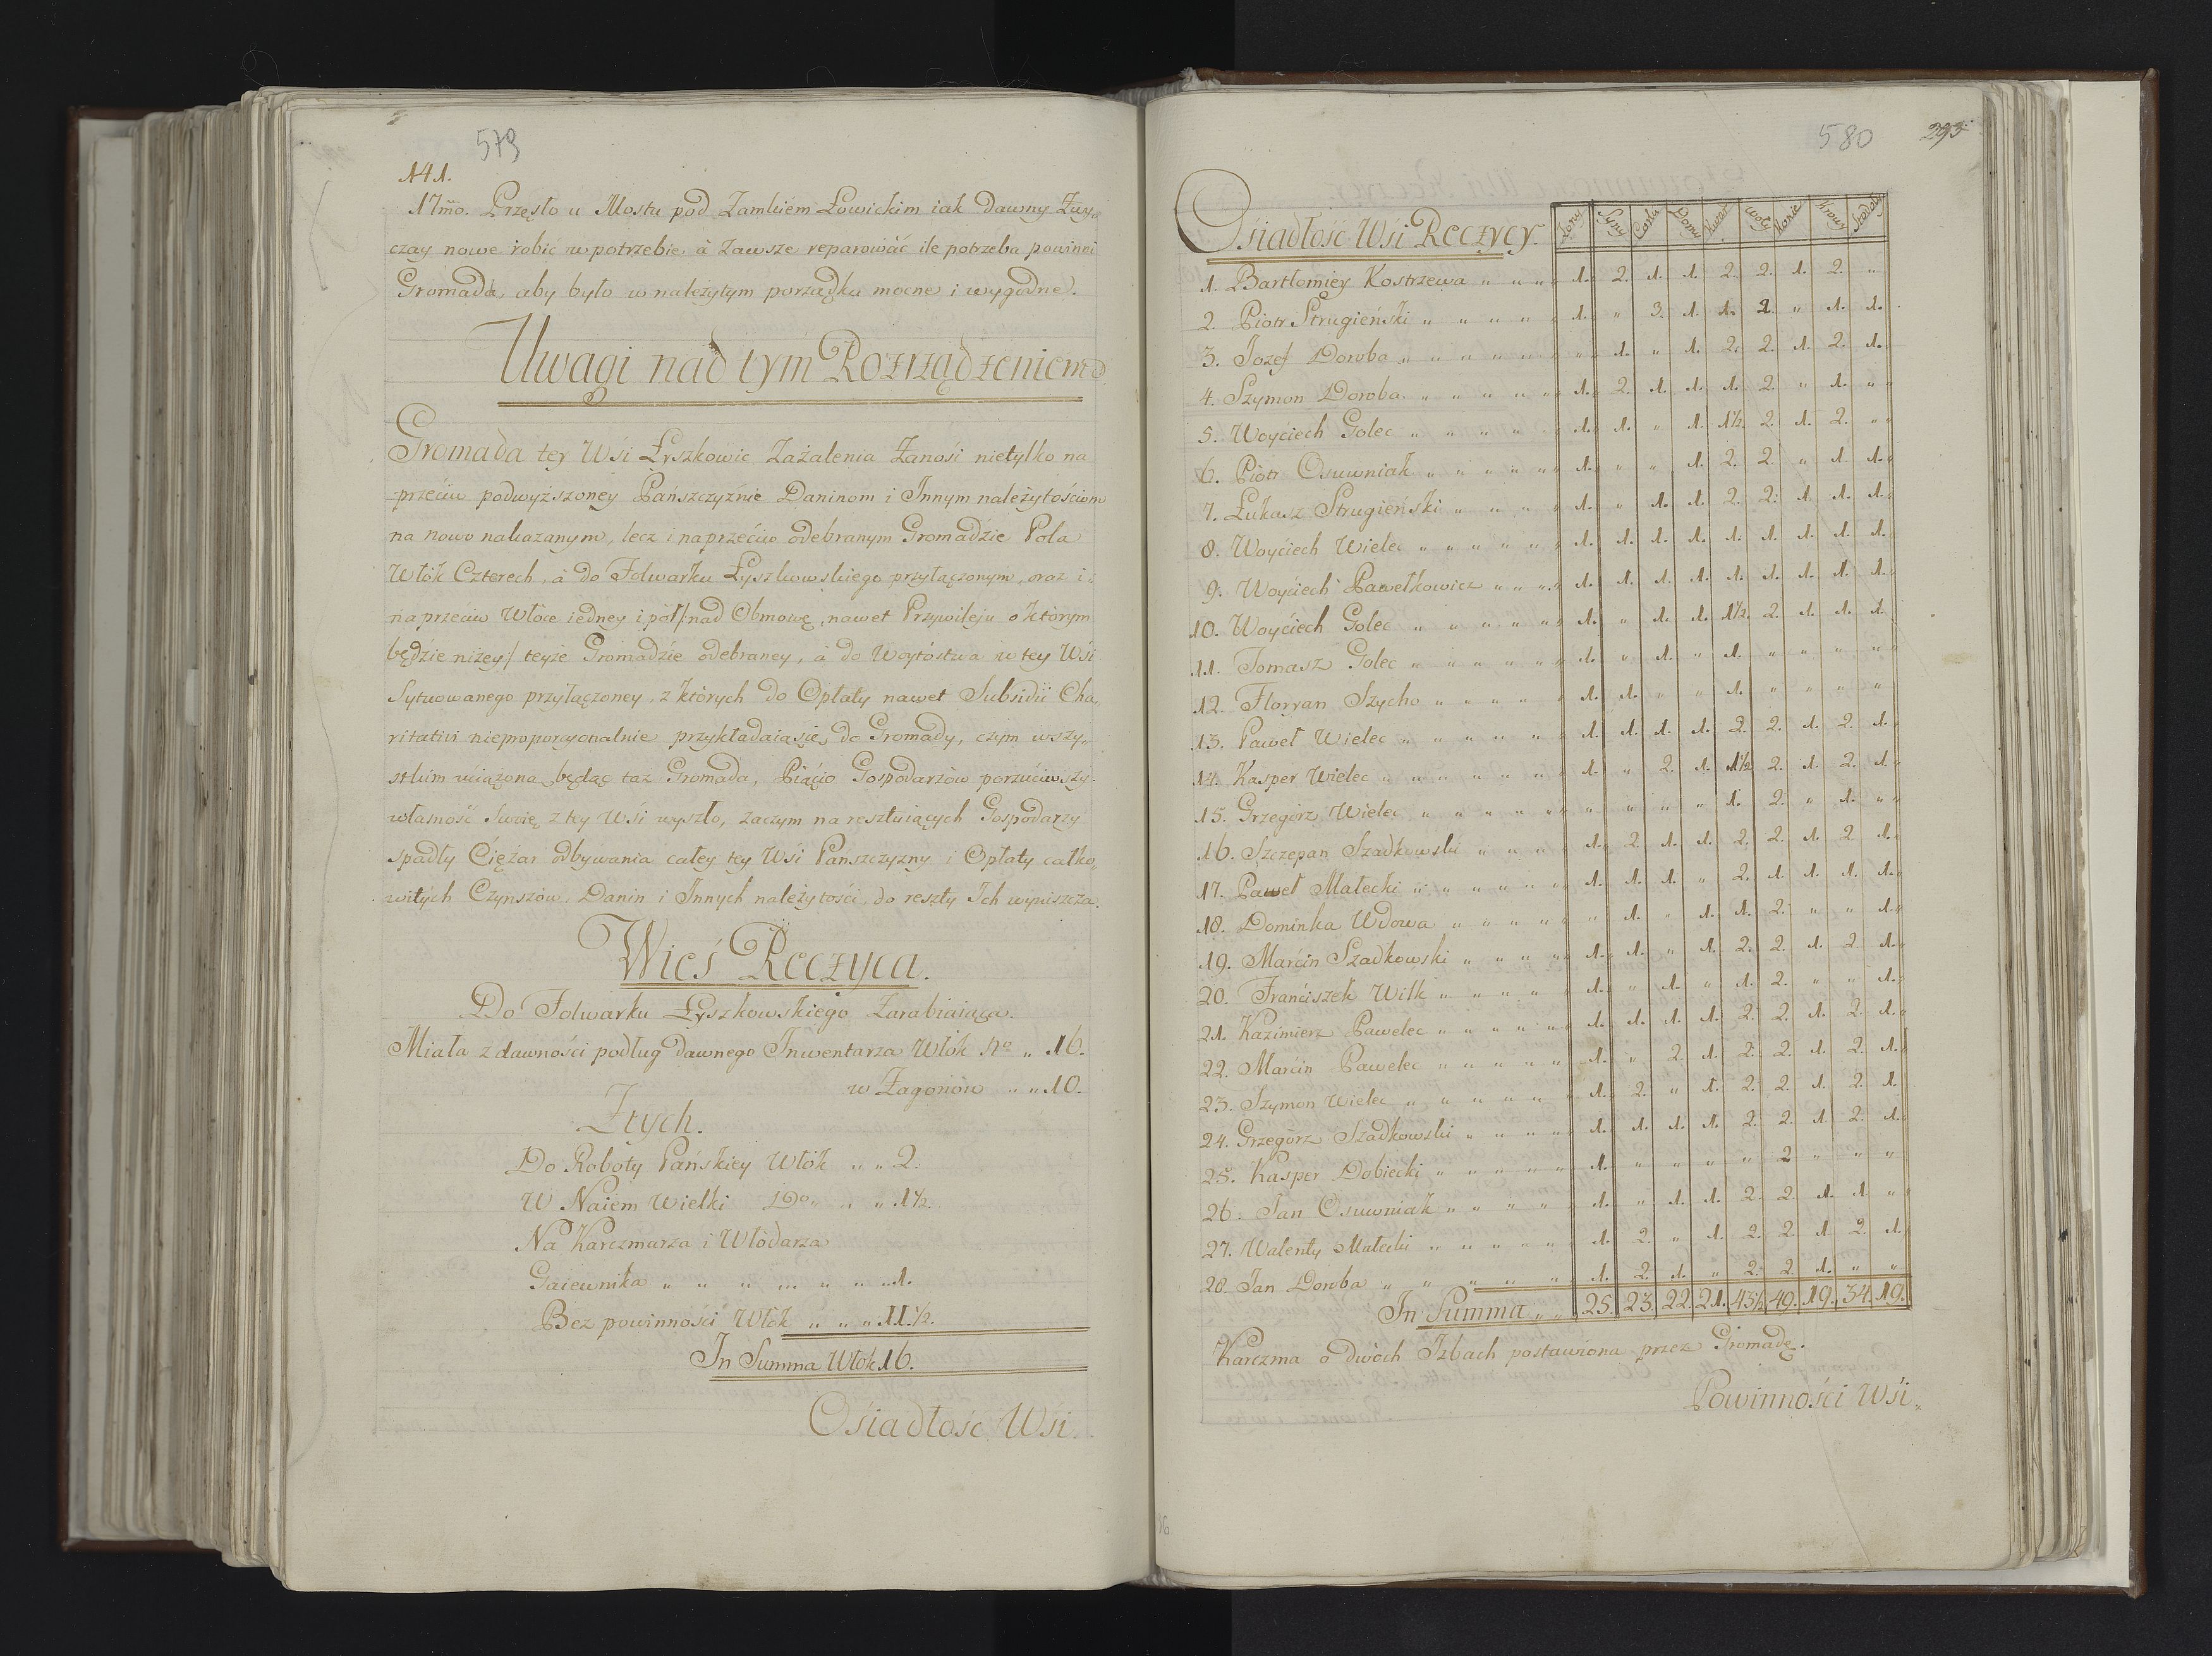 579
141.
17mo. Przęsło u Mostu pod Zamkiem Łowickim iak dawny Zwy„
czay nowe robic w potrzebie, à zawsze reparować ile potrzeba powinni
Gromada, aby było w należytym porządku mocne i wygodne.
Uwagi nad tym Rozrządzeniem
Gromada tey Wśi Łyszkowic Zażalenia Zanosi nietylko na
przeciw podwyższoney Pańszczyźnie Daninom i Innym należytościom
na nowo nakazanym, lecz i naprzećiw odebranym Gromadźie Pola
Włók Czterech, à do Folwarku Łyszkowskiego przyłączonym, oraz i„
naprzeciw Włóce iedney i pół /: nad Obmowę, nawet Przywileju o którym
będzie niżey :/ teyże Gromadzie odebraney, à do Woytostwa w tey Wśi
Sytuowanego przyłączoney, z których do Opłaty nawet Subsidii Cha„
ritativi nieproporcyonalnie przykładaią się do Gromady, czym wszy„
stkim uciążona będąc taż Gromada, Piąćio Gospodarzów porzućiwszy
własność Swoię z tey Wśi wyszło, zaczym na resztuiących Gospodarzy
spadły Ciężar odbywania całey tey Wśi Panszczyzny i Opłaty całko„
witych Czynszów, Danin i Innych należytości, do reszty Ich wyniszcza.
Wieś Reczyca.
Do Folwarku Łyszkowskiego Zarabiaiąca.
Miała z dawności podług dawnego Inwentarza Włók No „ 16.
w Zagonów „ „ 10.
Ztych.
Do Roboty Pańskiey Włók „ „ 2.
W Naiem Wielki Do „ „ „ 1½.
Na Karczmarza i Włodarza
Gaiewnika „ „ „ „ „ „ „ 1.
Bez powinności Włók „ „ „ 11.½.
In Summa Włók 16.
Ośiadłośc Wśi.
580 293
Ośiadłość Wśi Reczycy. Żony Syny Corki Domy Woły Konie Krowy
1. Bartłomiey Kostrzewa „ „ „ 1. 2. 1. 1. 2. 2. 1. 2. „
2. Piotr Strugieński „ „ „ „ „ 1. „ 3. 1. 1. 2. „ 1. 1.
3. Jozef Doroba „ „ „ „ „ „ „ 1. „ 1. 2. 2. 1. 2. 1.
4. Szymon Doroba „ „ „ „ „ 1. 2. 1. 1. 1. 2. „ 1. „
5. Woyciech Golec „ „ „ „ „ 1. 1. „ 1. 1½ 2. 1. 2. „
6. Piotr Osuwniak „ „ „ „ „ 1. „ „ 1. 2. 2. „ 1. 1.
7. Łukasz Strugieński „ „ „ „ 1. „ 1. 1. 2. 2. 1. 1. 1.
8. Woyćiech Wielec „ „ „ „ „ 1. 1. 1. 1. 1. 1. 1. 1. 1.
9. Woyćiech Pawełkowicz „ „ „ 1. 1. 1. 1. 1. 1. 1. 1. 1.
10. Woyćiech Golec „ „ „ „ „ 1. „ 1. 1. 1½. 2. 1. 1. 1.
11. Tomasz Golec „ „ „ „ „ „ 1. „ 1. „ 1. „ „ „ „
12. Floryan Szycho „ „ „ „ 1. 1. „ „ 1. „ „ „ „
13. Paweł Wielec „ „ „ „ „ „ 1. 1. 1. 1. 2. 2. 1. 2. 1.
14. Kasper Wielec „ „ „ „ „ „ 1. „ 2. 1. 1½ 2. 1. 2. 1.
15. Grzegórz Wielec „ „ „ „ „ „ „ „ „ 1. 2. „ 1. „
16. Szczepan Szadkowski „ „ „ „ 1. 2. 1. 1. 2. 2. 1. 2. 1.
17. Paweł Małecki „ „ „ „ „ „ 1. 1. 1. „ 2. 1. 1. 1. 1.
18. Dominka Wdowa „ „ „ „ „ „ 1. „ 1. 1. 2. „ „ 1.
19. Marćin Szadkowski „ „ „ „ 1. 1. „ 1. 2. 2. 1. 2. 1.
20. Franćiszek Wilk „ „ „ „ „ 1. „ 1. „ 1. 2. „ „ 1.
21. Kazimierz Pawelec „ „ „ „ „ 1. 1. 1. 1. 2. 2. 1. 2. 1.
22. Marćin Pawelec „ „ „ „ „ 1. „ 2. 1. 2. 2. 1. 2. 1.
23. Szymon Wielec „ „ „ „ „ „ 1. 2. „ 1. 2. 2. 1. 2. 1.
24. Grzegórz Szadkowski „ „ „ „ 1. 1. 1. 1. 2. 2. 1. 2. 1.
25. Kasper Dobiecki „ „ „ „ „ 1. „ „ „ „ 2 „ „ „
26. Jan Osuwniak „ „ „ „ „ 1. „ 1. 1. 2. 2. 1. 1. „
27. Walenty Małecki „ „ „ „ „ 1. 2. „ 1. 2. 2. 1. 2. 1.
28. Jan Doroba „ „ „ „ „ 1. 2. 1. „ 2. 2. 1. „ „
In Summa „ „ 25. 23. 22. 21. 43½ 49. 19. 34. 19.
Karczma o dwóch Izbach postawiona przez Gromadę.
Powinności Wśi„